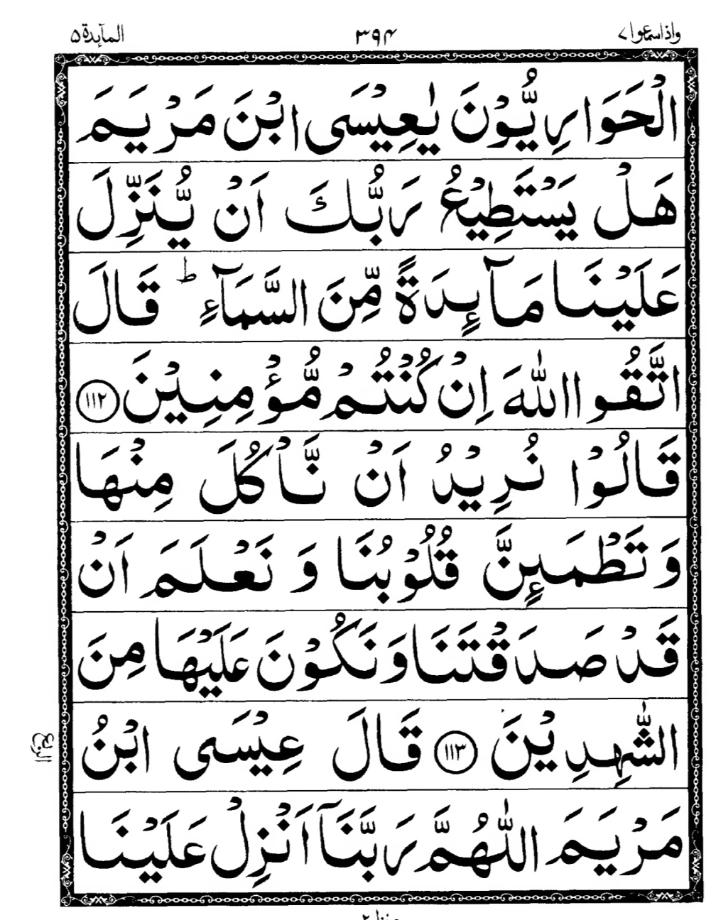 واذاسمعوا٧ ٣٩۴ المآىٕدة ۵
الْحَوَارِيُّوْنَ يٰعِيْسَى ابْنَ مَرْيَمَ
هَلْ يَسْتَطِيْعُ رَبُّكَ اَنْ يُّنَزِّلَ
عَلَيْنَا مَآىِٕدَةً مِّنَ السَّمَآءِ ؕ قَالَ
اتَّقُوا اللّٰهَ اِنْ كُنْتُمْ مُّؤْمِنِيْنَ ۝۱۱۲
قَالُوْا نُرِيْدُ اَنْ نَّاْكُلَ مِنْهَا
وَ تَطْمَىِٕنَّ قُلُوْبُنَا وَ نَعْلَمَ اَنْ
قَدْ صَدَقْتَنَا وَ نَكُوْنَ عَلَيْهَا مِنَ
الشّٰهِدِيْنَ ۝۱۱۳ قَالَ عِيْسَى ابْنُ
الربع
مَرْيَمَ اللّٰهُمَّ رَبَّنَآ اَنْزِلْ عَلَيْنَا